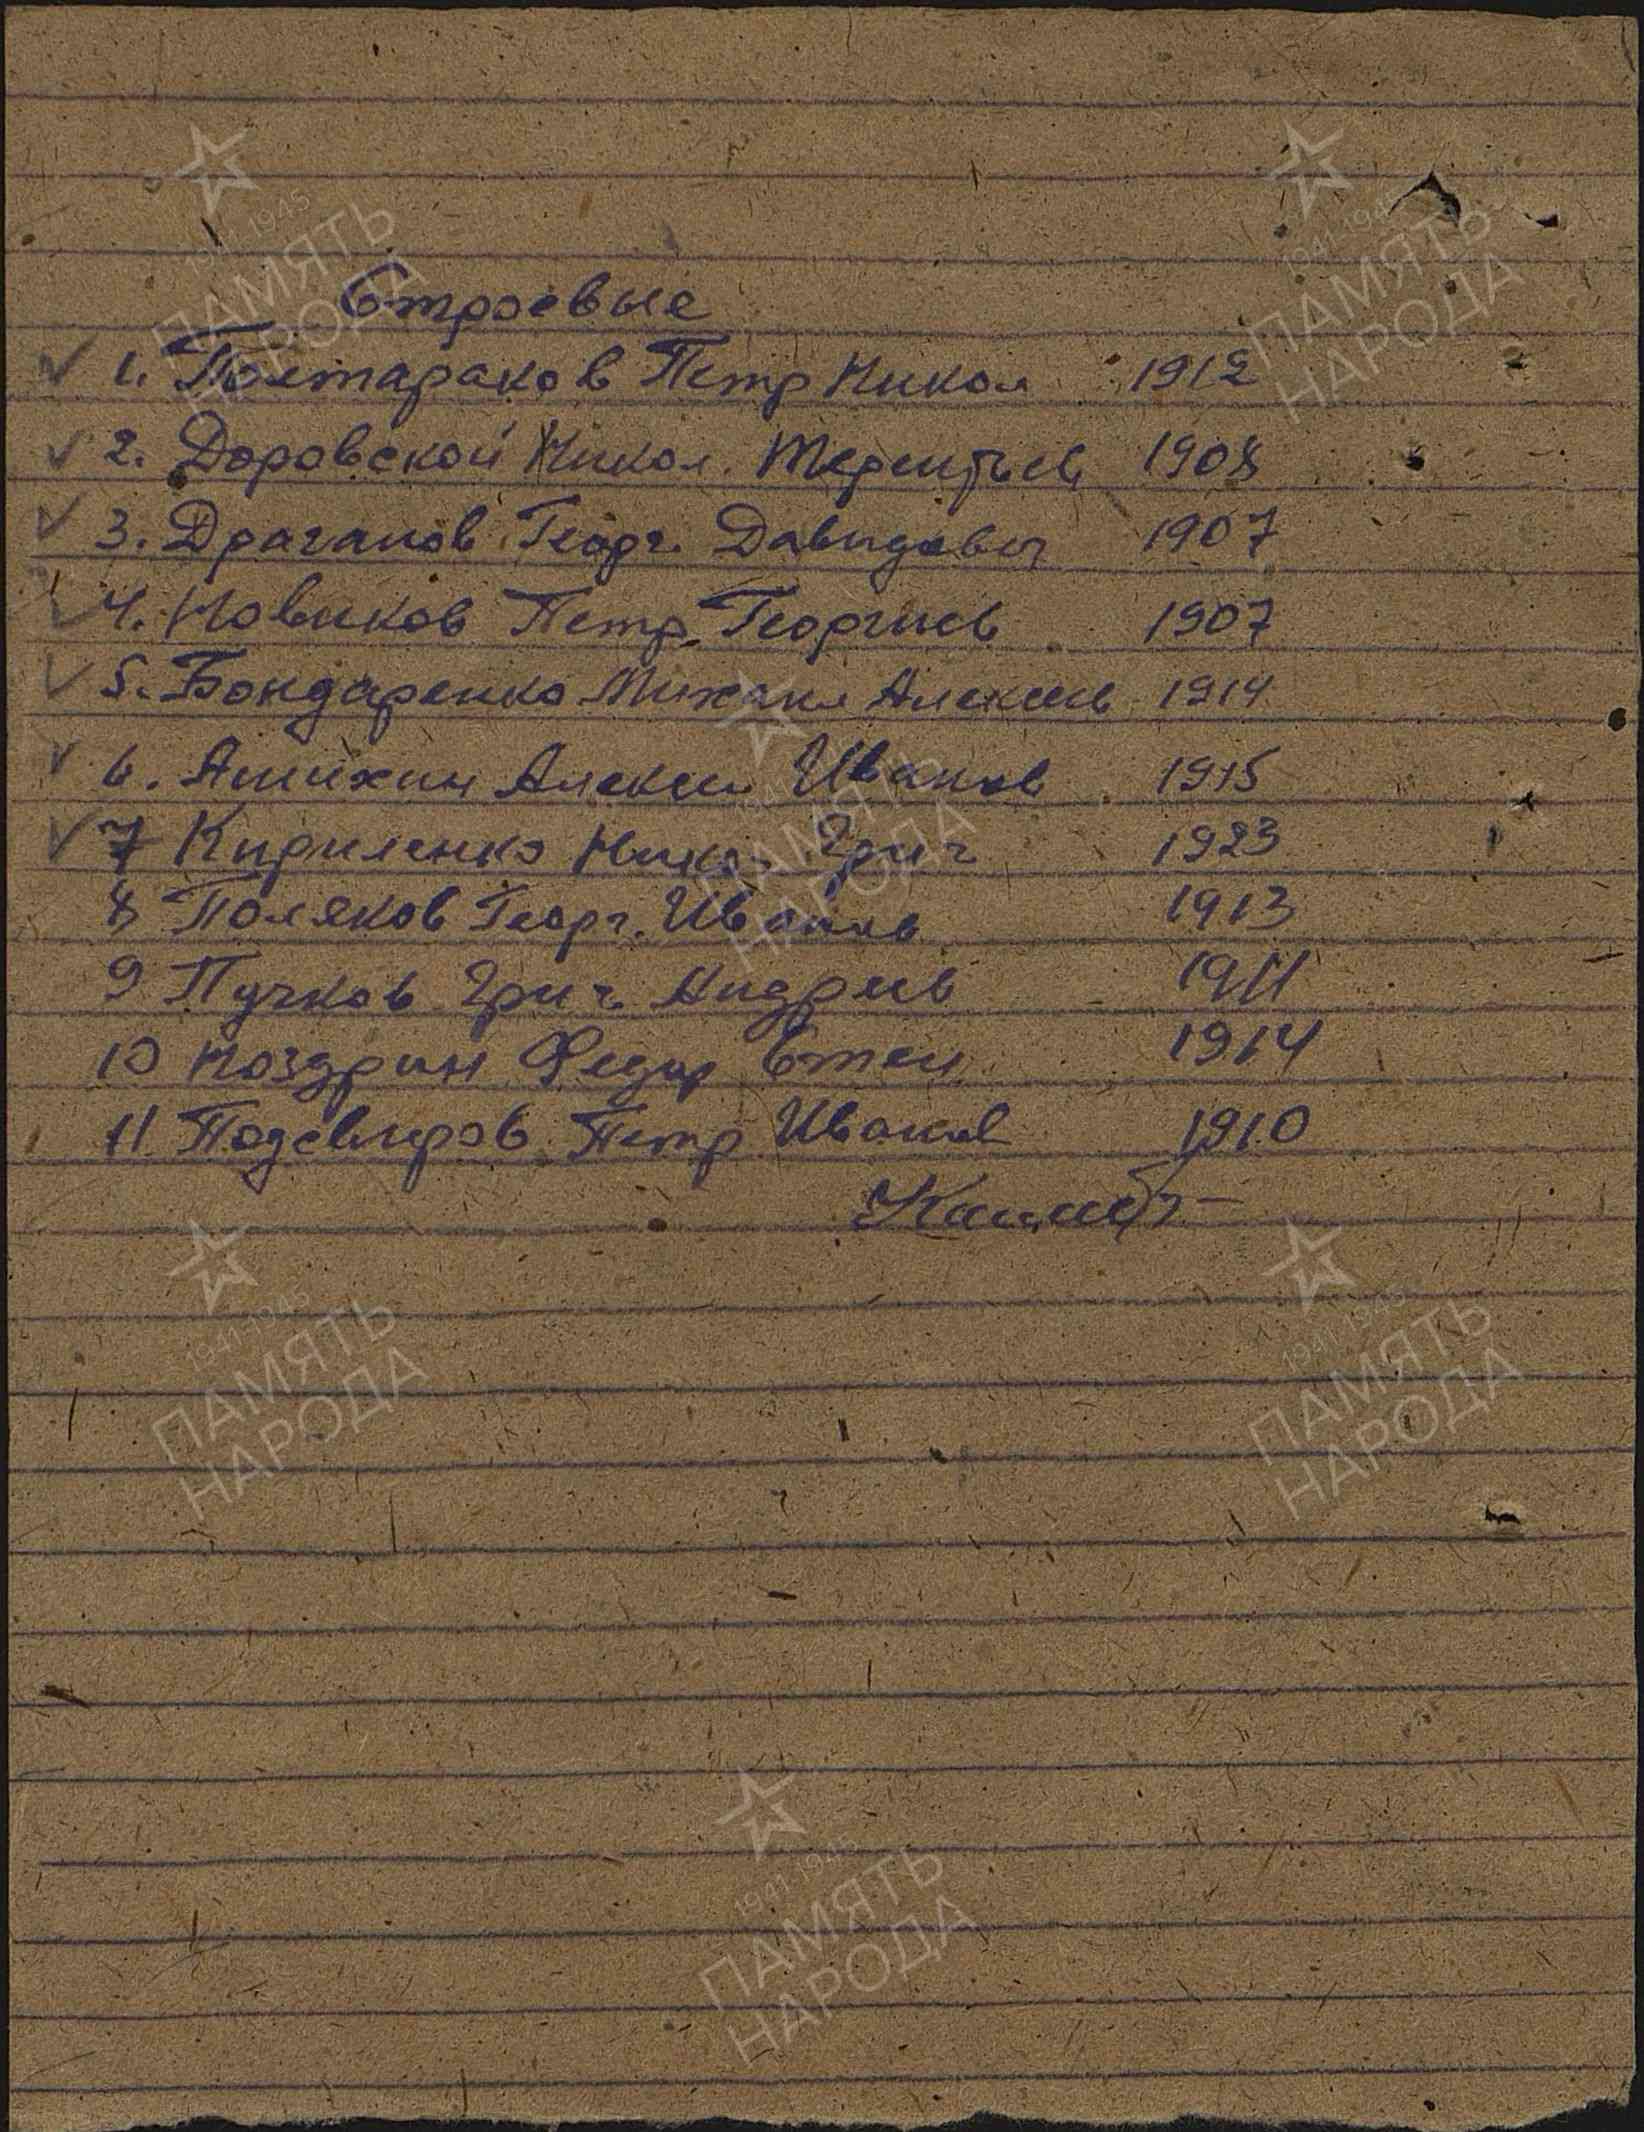 Строевые
1. Полтараков Петр Никол 1912
2. Доровской Никол. Терентьев 1908
3. Драганов Георг. Давидович 1907
4. Новиков Петр Георгиев 1907
5. Бондаренко Михаил Алексеев 1914
6. Анихин Алексей Иванов 1915
7 Кириленко Никол Григ 1923
8 Поляков Георг. Иванов 1913
9 Пучков Григ Андреев 1911
10 Ноздрин Федор Степ 1914
11 Подсвиров Петр Иванов 1910
1941-1945
ПАМЯТЬ
НАРОДА
1941-1945
ПАМЯТЬ
НАРОДА
1941-1945
ПАМЯТЬ
НАРОДА
1941-1945
ПАМЯТЬ
НАРОДА
1941-1945
ПАМЯТЬ
НАРОДА
1941-1945
ПАМЯТЬ
НАРОДА